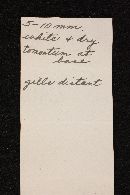 5-10 mm.
white & dry
tomentum at
base
gills distant